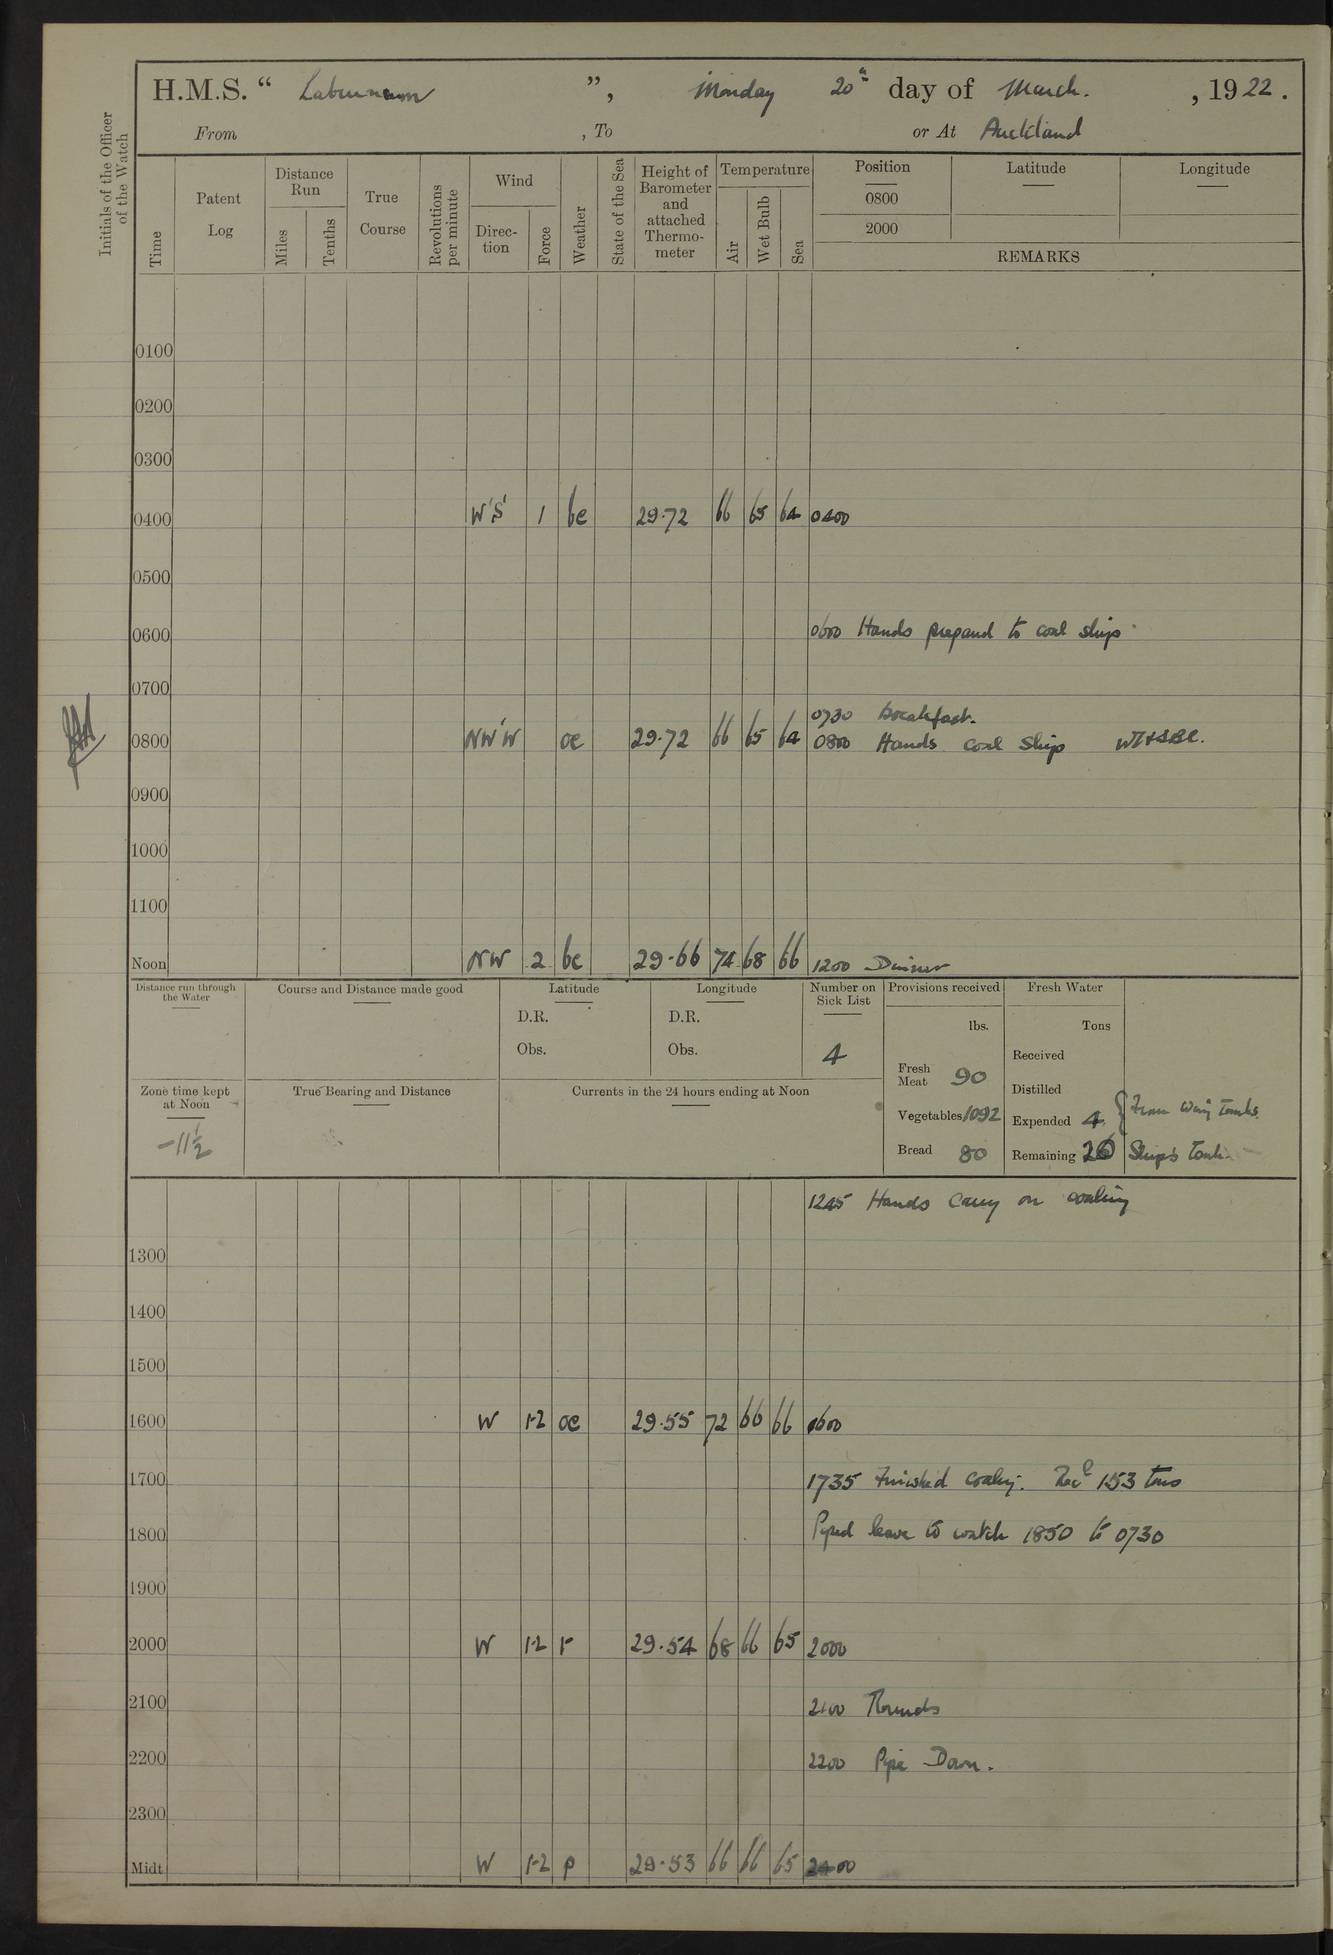 H.M.S. “ Laburnum ”, Monday 20th day of March. , 1922.
From , To or At Auckland
Initials of the Officer of the Watch
Time
Patent Log
Distance Run
Miles
Tenths
True Course
Revolutions per minute
Wind
Direc-tion
Force
Weather
State of the Sea
Height of Barometer and attached Thermo-meter
Temperature
Air
Wet Bulb
Sea
Position
0800
2000
Latitude
Longitude
REMARKS
0100
0200
0300
0400 W'S' 1 bc 29.72 66 65 64 0400
0500
0600 0600 Hands prepared to coal ship
0700
0730 Breakfast.
0800 NW'W oc 29.72 66 65 64 0800 Hands coal ship
0900
1000
1100
Noon NW 2 bc 29.66 74 68 66 1200 Dinner
Distance run through the Water
Course and Distance made good
Latitude
D.R.
Obs.
Longitude
D.R.
Obs.
Number on Sick List
4
Provisions received
lbs.
Fresh Meat 90
Vegetables 1092
Bread 80
Fresh Water
Tons
Received
Distilled
Expended 4 { From tanks.
Remaining 26 Ship's tank.
Zone time kept at Noon
-11½
True Bearing and Distance
Currents in the 24 hours ending at Noon
1245 Hands carry on coaling
1300
1400
1500
1600 W 1-2 oc 29.55 72 66 66 1600
1700 1735 Finished coaling. Recd 153 tons
1800 Piped leave to watch 1850 to 0730
1900
2000 W 1-2 r 29.54 68 66 65 2000
2100 2100 Rounds
2200 2200 Pipe Down.
2300
Midt W 1-2 p 29.53 66 66 65 2400